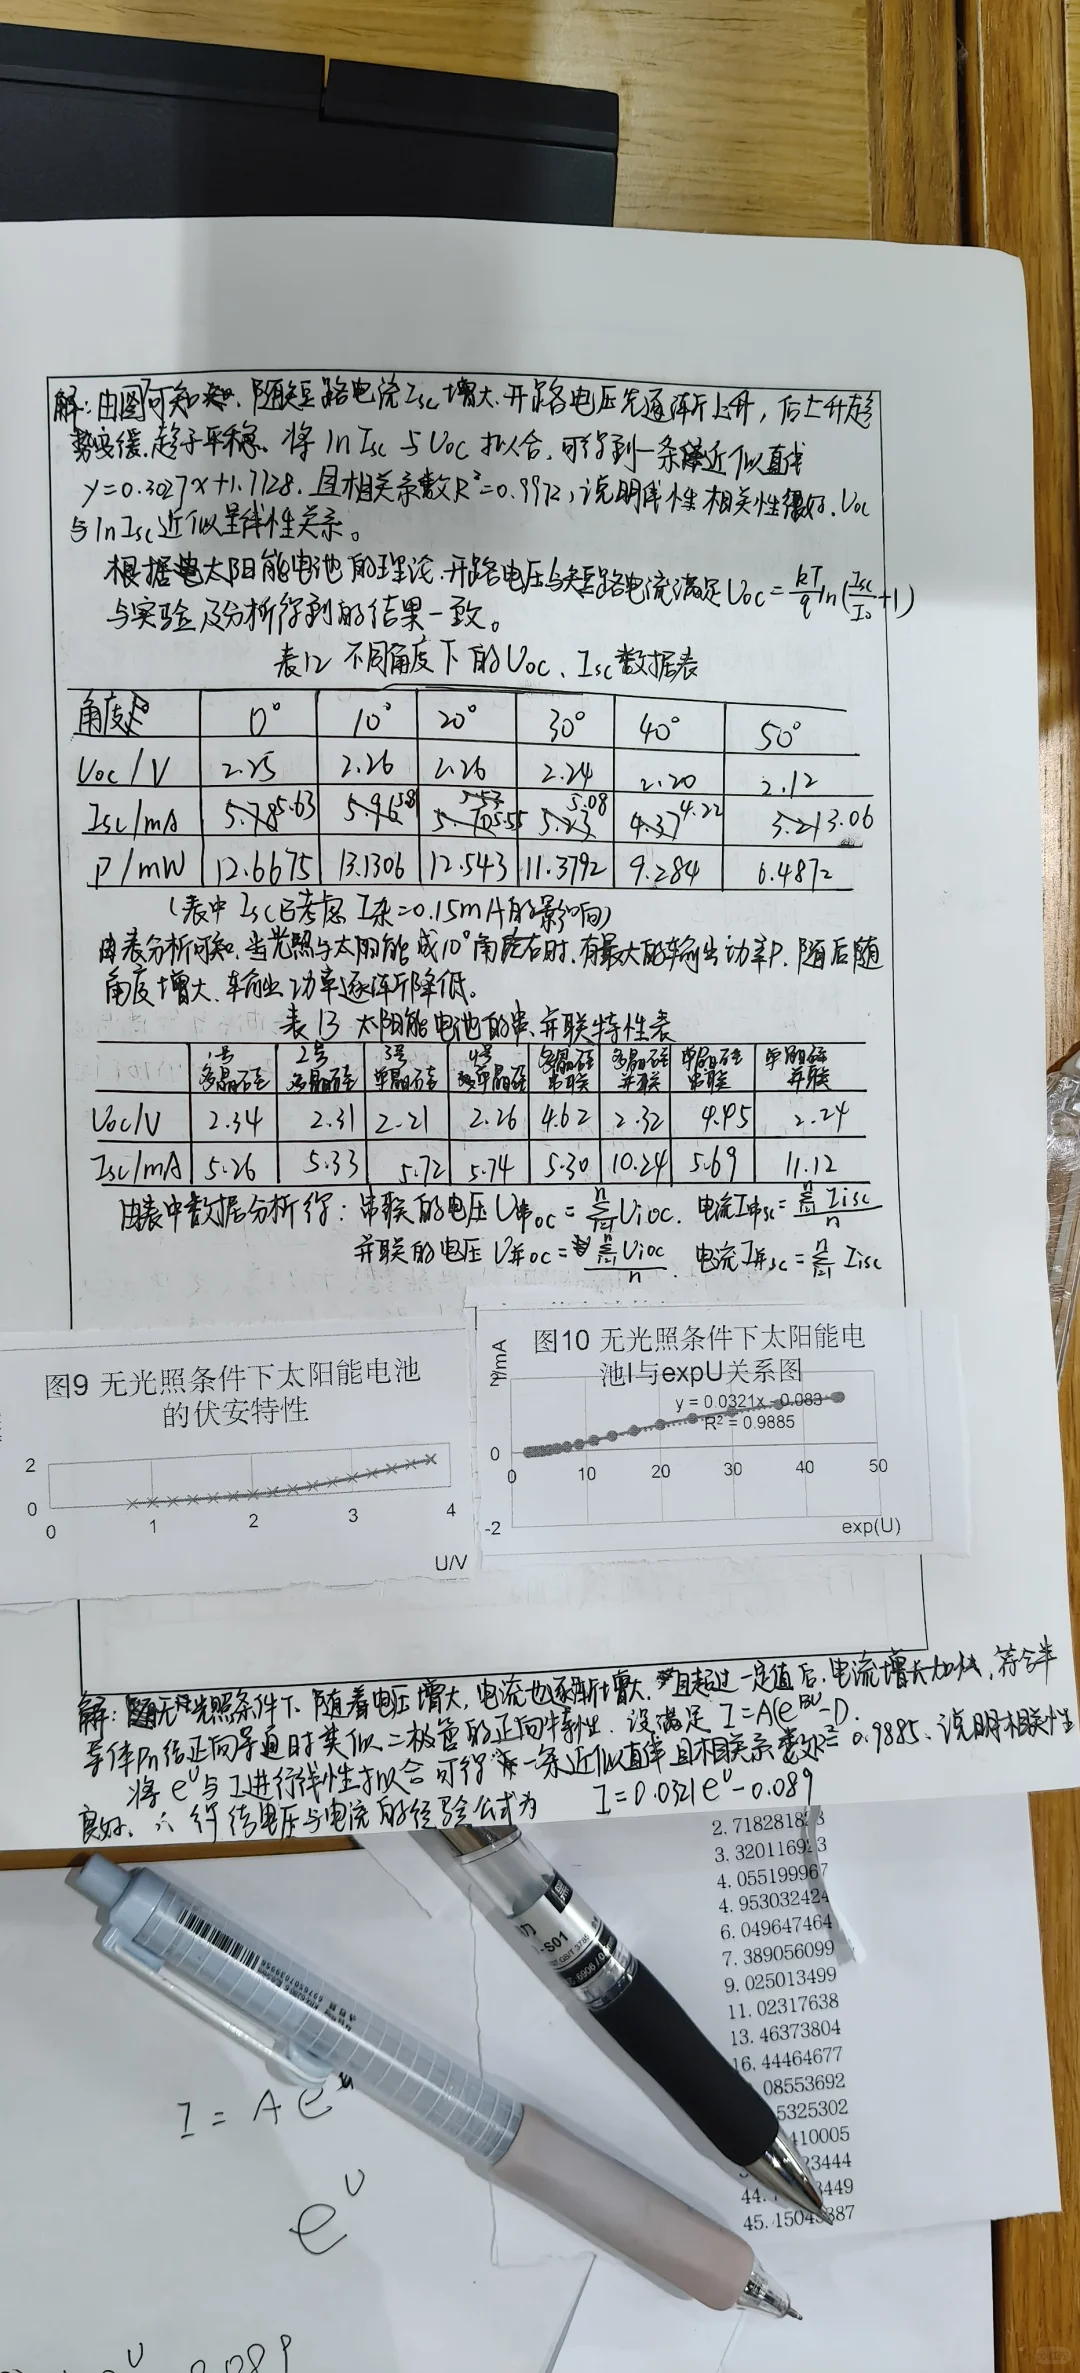 解:由图可知,随短路电流Isc增大,开路电压先逐渐上升,后上升趋
势变缓,趋于平稳。将lnIsc与Uoc拟合,可得到一条接近似直线
y=0.3027x+1.7728,且相关系数R²=0.9972,说明线性相关性很好,Uoc
与lnIsc近似呈线性关系。
根据太阳能电池的理论,开路电压与短路电流满足Uoc=kT/q ln(Isc/I₀+1)
与实验及分析得到的结果一致。
表12 不同角度下的Uoc、Isc数据表
角度 0° 10° 20° 30° 40° 50°
Uoc/V 2.25 2.26 2.26 2.24 2.20 2.12
Isc/mA 5.78 5.63 5.96 5.81 5.70 5.55 5.23 5.08 4.37 4.22 3.21 3.06
P/mW 12.6675 13.1306 12.543 11.3792 9.284 6.4872
(表中Isc已考虑I杂=0.15mA的影响)
由表分析可知,当光照与太阳能成10°角左右时,有最大的输出功率P,随后随
角度增大,输出功率逐渐降低。
表13 太阳能电池的串、并联特性表
1号多晶硅 2号多晶硅 3号单晶硅 4号单晶硅 多晶硅串联 多晶硅并联 单晶硅串联 单晶硅并联
Uoc/V 2.34 2.31 2.21 2.26 4.62 2.32 4.45 2.24
Isc/mA 5.26 5.33 5.72 5.74 5.30 10.24 5.69 11.12
由表中数据分析得:串联的电压U串oc=∑ⁿᵢ₌₁Uioc. 电流I串sc=∑ⁿᵢ₌₁Iisc/n
并联的电压U并oc=∑ⁿᵢ₌₁Uioc/n. 电流I并sc=∑ⁿᵢ₌₁Iisc
图9 无光照条件下太阳能电池
的伏安特性
2
0
0 1 2 3 4
U/V
图10 无光照条件下太阳能电
池I与expU关系图
I/mA
y = 0.0321x - 0.083
R² = 0.9885
0
0 10 20 30 40 50
-2
exp(U)
解:无光照条件下,随着电压增大,电流也逐渐增大,且超过一定值后,电流增长加快,符合半
导体Pn结正向导通时类似二极管的正向特性。设满足I=A(e^BU-1).
将e^U与I进行线性拟合可得一条近似直线且相关系数R²=0.9885、说明相关性
良好、∴得结电压与电流的经验公式为 I=0.0321e^U-0.089
3.320116923
4.055199967
4.953032424
6.049647464
7.389056099
9.025013499
11.02317638
13.46373804
16.44464677
08553692
5325302
410005
3444
44.
449
S01
I=Ae
e^U
U
0.089